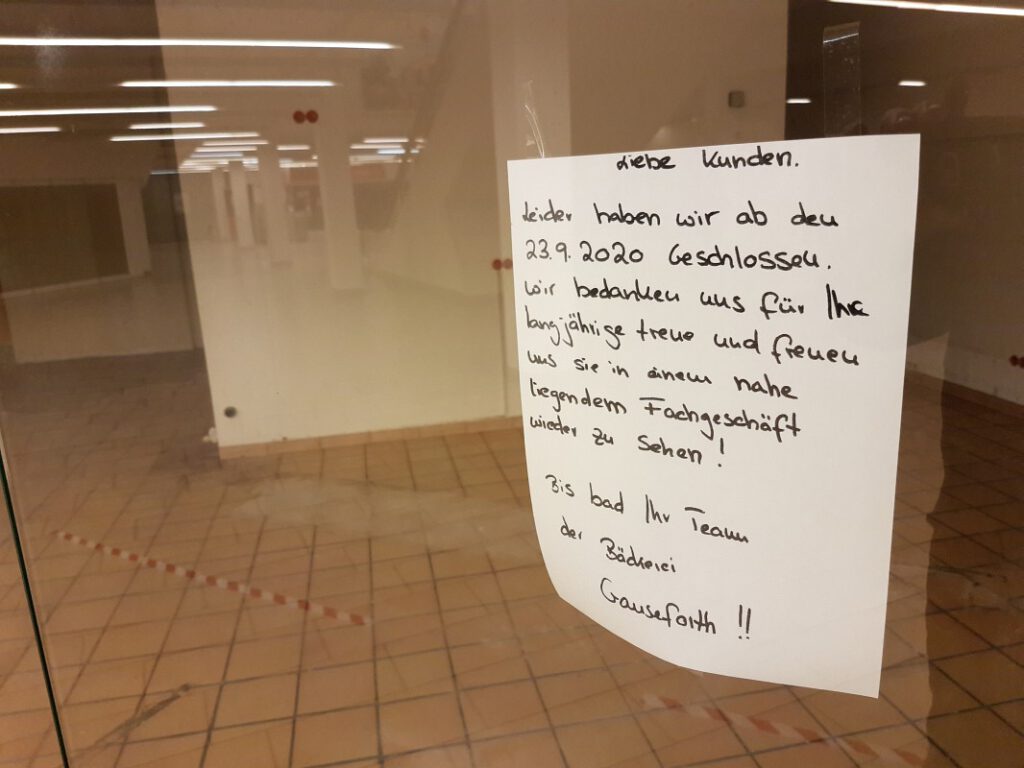 Liebe Kunden.
Leider haben wir ab den
23.9.2020 Geschlossen.
Wir bedanken uns für Ihre
langjährige treue und freuen
uns sie in einem nahe
liegendem Fachgeschäft
wieder zu sehen!
Bis bad Ihr Team
der Bäckerei
Gauseforth !!